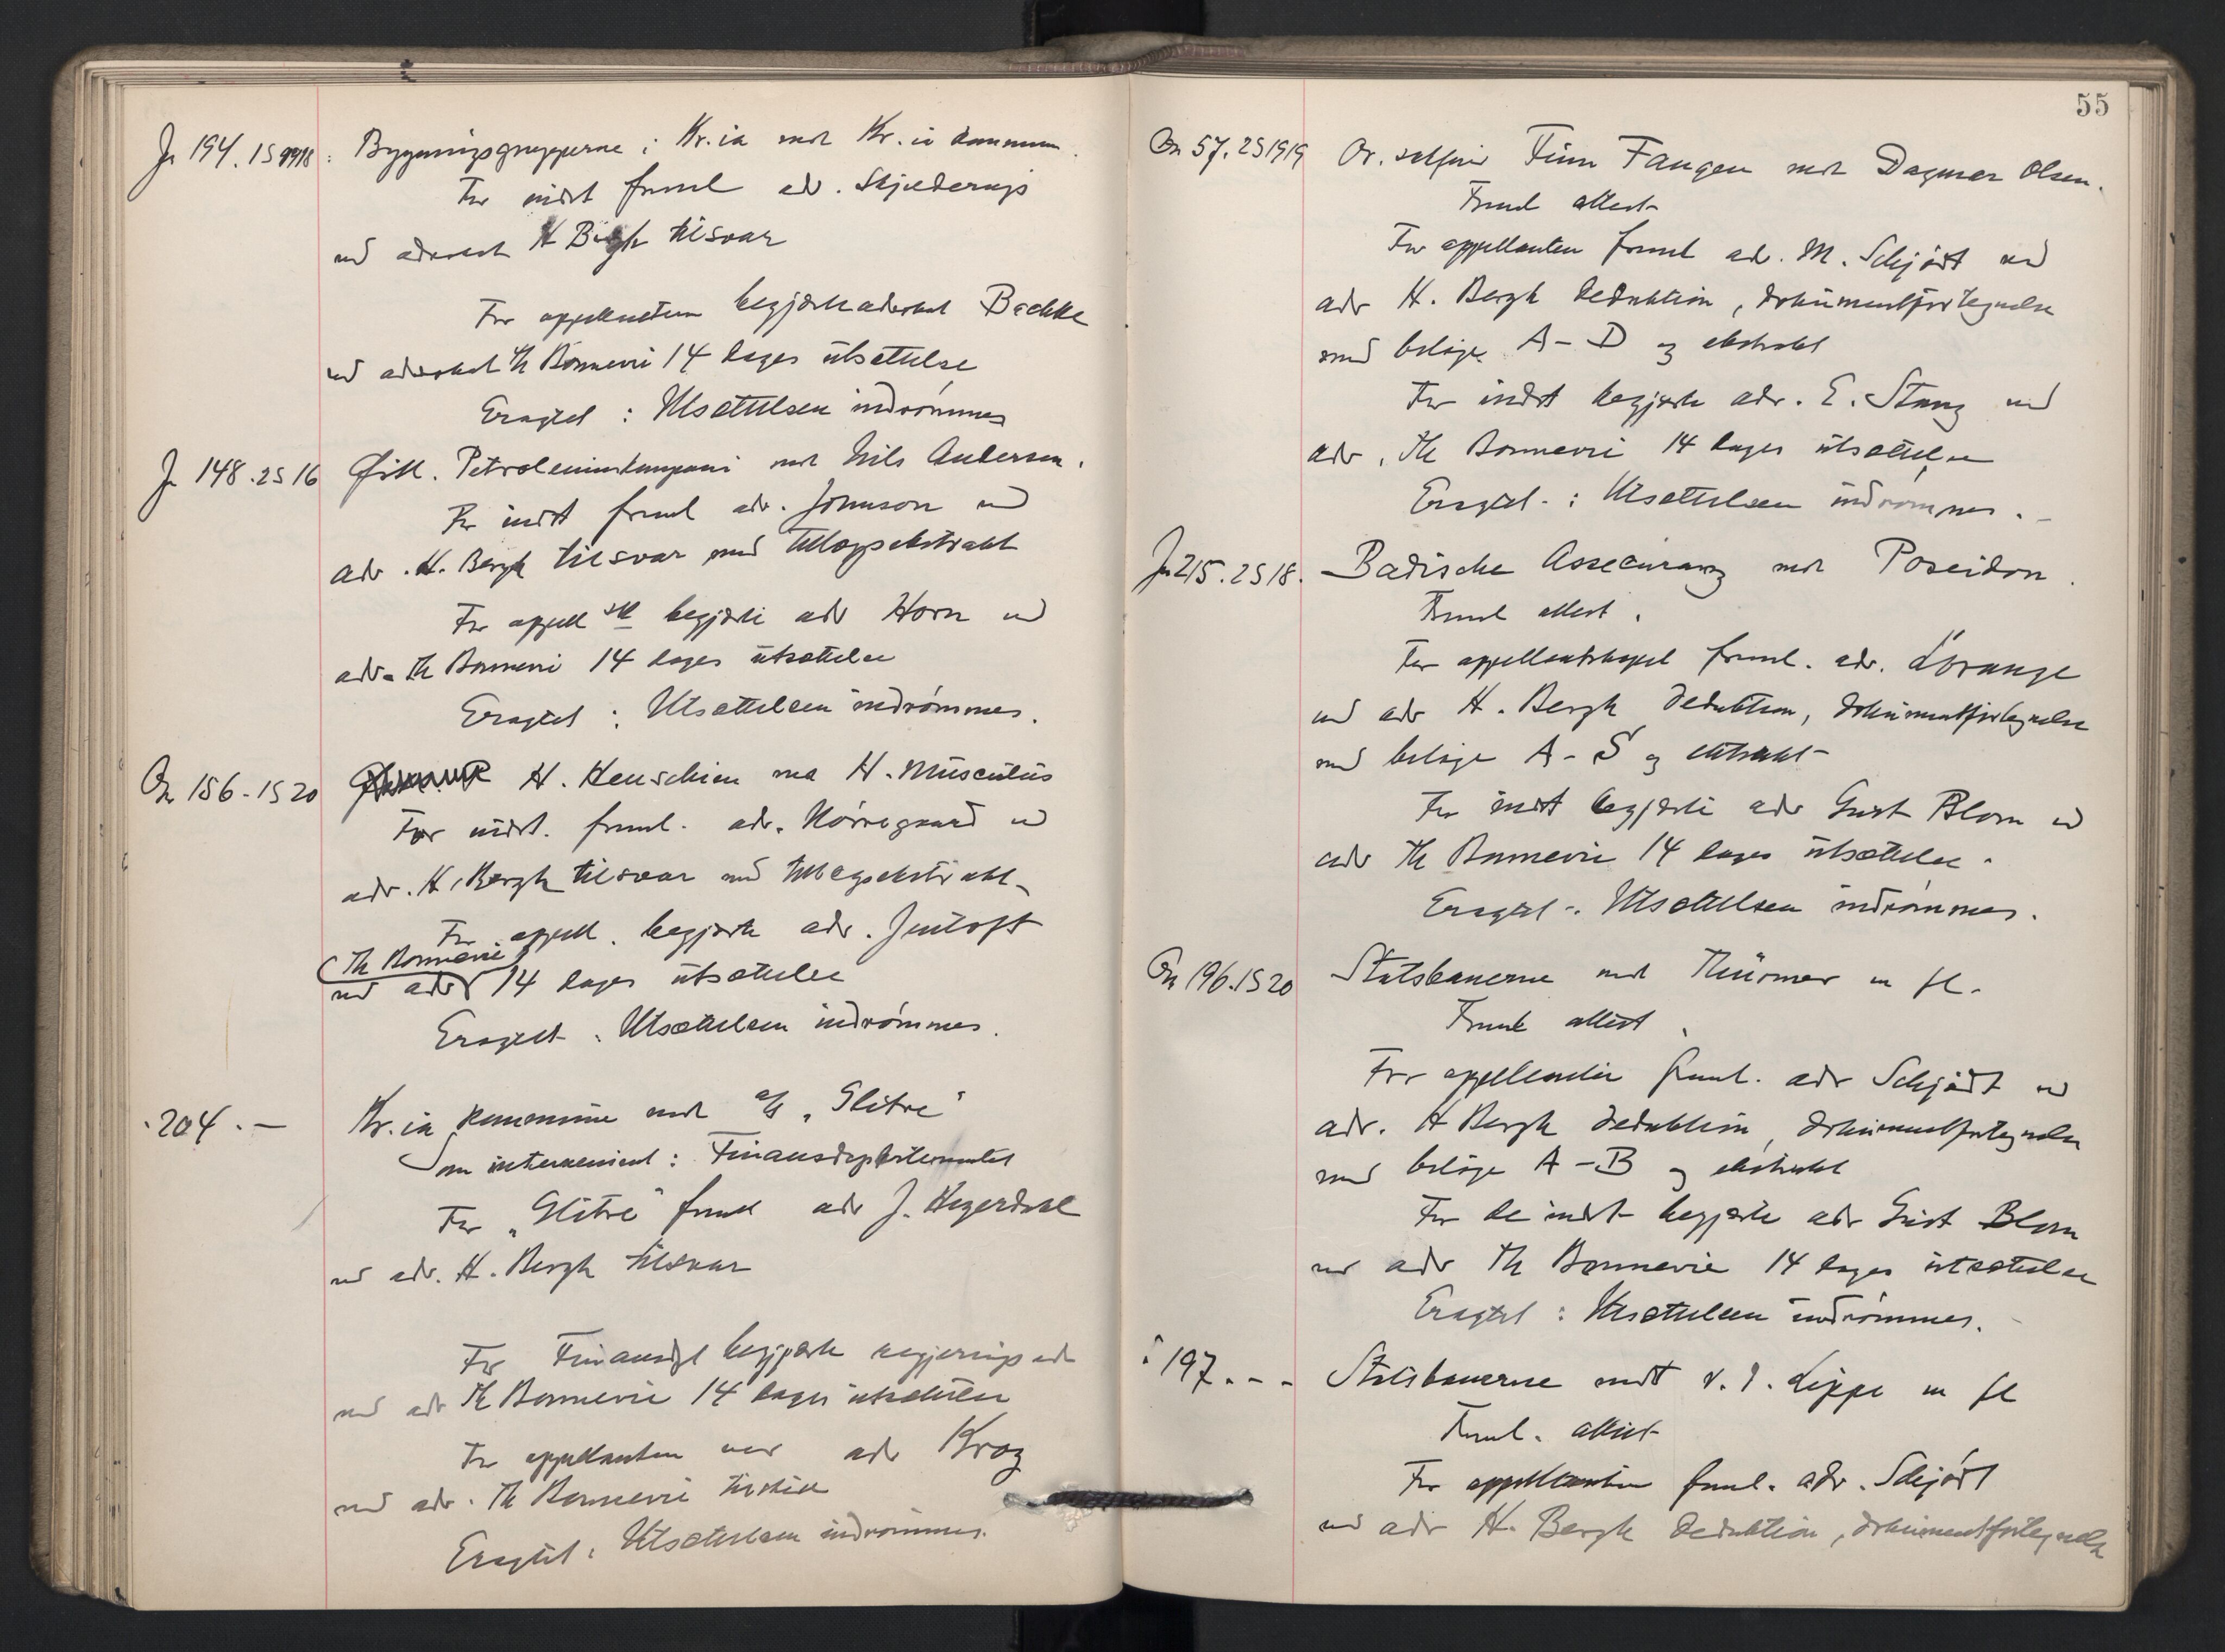 Jr 194. 1S 1918: Bygningsgrupperne i Kr.ia mot Kr.ia kommune.
For indst freml adv. Skjederup
ved advokat H Bergh tilsvar
For appellanten begjærte advokat Bachke
ved advokat Th Bonnevie 14 dages utsættelse
Eragtet: Utsættelsen indrømmes
Jr 148. 2S 16 Østl. Petroleumskompani mot Nils Andersen.
For indst freml adv. Johnson ved
adv. H. Bergh tilsvar med tillægsekstrakt
For appell begjærte adv Horn ved
adv. Th Bonnevie 14 dages utsættelse
Eragtet: Utsættelsen indrømmes.
On 156. 1S 20 H. Henschien mot H. Musculus
For indst. freml. adv. Nørregaard ved
adv. H. Bergh tilsvar med tillægsekstrakt.
For appell. begjærte adv. Jentoft
ved adv (Th Bonnevie) 14 dages utsættelse
Eragtet: Utsættelsen indrømmes.
" 204. — Kr.ia kommune mot A/S "Glitre"
Som intervenient: Finansdepartementet
For "Glitre" freml adv J. Hegerdahl
ved adv. H. Bergh tilsvar
For Finansdpt begjærte regjeringsadv
ved adv Th Bonnevie 14 dages utsættelse
For appellanten var adv Krog
ved adv. Th Bonnevie tilstede
Eragtet: Utsættelsen indrømmes.
55
On 57. 2S 1919 Or. Finn Fangen mot Dagmar Olsen.
Freml attest
For appellanten freml adv. M. Schjødt ved
adv H. Bergh deduktion, dokumentfortegnelse
med bilage A-D og ekstrakt
For indst begjærte adv. E. Stang ved
adv. Th Bonnevie 14 dages utsættelse
Eragtet: Utsættelsen indrømmes.
Jr 215. 2S 18. Badische Assecuranz mot Poseidon.
Freml attest.
For appellantskapet freml. adv. Lorange
ved adv H. Bergh deduktion, dokumentfortegnelse
med bilage A-S og ekstrakt
For indst begjærte adv Gust Blom ved
adv Th Bonnevie 14 dages utsættelse.
Eragtet: Utsættelsen indrømmes.
On 196. 1S 20 Statsbanerne mot Thurmer m fl.
Freml attest.
For appellanten freml. adv Schjødt ved
adv. H Bergh deduktion, dokumentfortegnelse
med bilage A-B og ekstrakt
For de indst begjærte adv Gust Blom
ved adv Th Bonnevie 14 dages utsættelse
Eragtet: Utsættelsen indrømmes.
" 197. - - Statsbanerne mot v. d. Lippe m fl
Freml. attest
For appellanten freml. adv. Schjødt
ved adv H. Bergh deduktion, dokumentfortegnelse